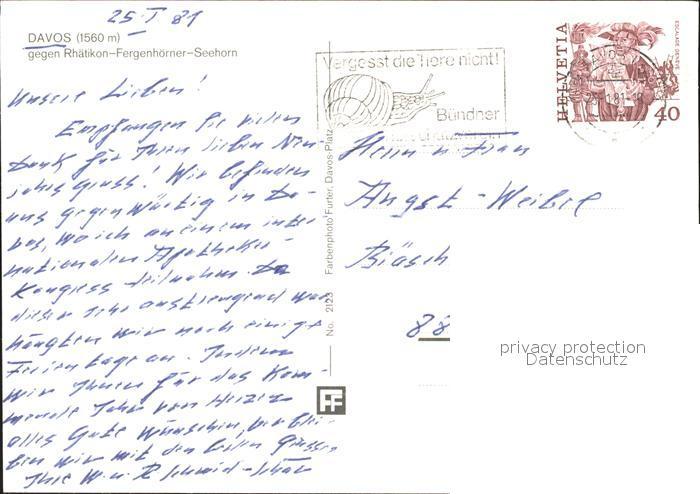 25. I 81
DAVOS (1560 m)
gegen Rhätikon–Fergenhörner–Seehorn
Unsere Lieben!
Empfangen Sie vielen
Dank für Ihren lieben Neu-
jahrsgruss! Wir befinden
uns gegenwärtig in Da-
vos, wo ich an einem inter-
nationalen Apotheker-
Kongress teilnahm. Da
dieser sehr anstrengend war
hängten wir noch einige
Ferientage an. Indem
wir Ihnen für das Kom-
mende Jahr von Herzen
alles Gute wünschen, verblei-
ben wir mit den besten Grüssen
Ihre W. u. R Schmid-Schär
No. 2123 Farbenphoto Furter, Davos-Platz
FF
Vergesst die Tiere nicht!
Bündner
HELVETIA
ESCALADE GENÈVE
40
Herrn u Frau
Angst-Weibel
Bläsch
88
privacy protection
Datenschutz